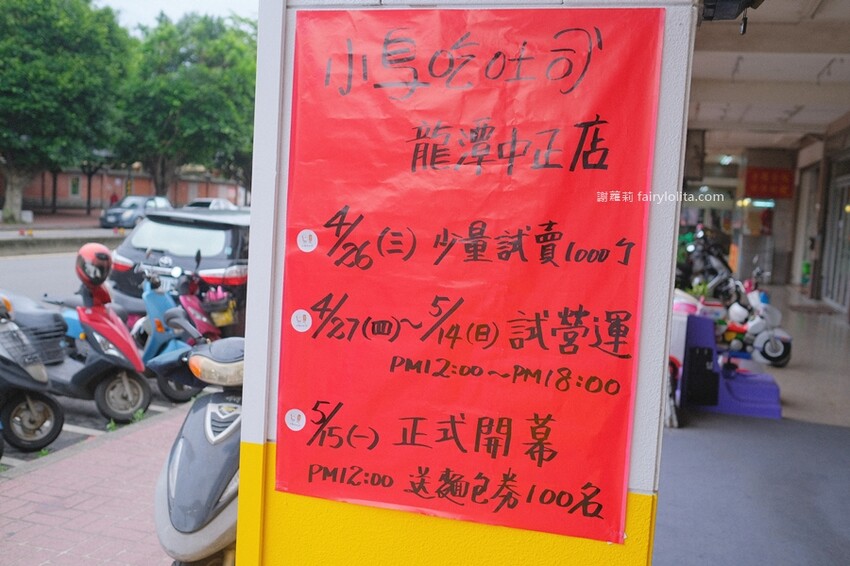 小鳥吃吐司
龍潭中正店
謝蘿莉 fairylolita.com
4/26(三) 少量試賣1000個
4/27(四)~5/14(日) 試營運
PM12:00~PM18:00
5/15(一) 正式開幕
PM12:00 送麵包券100名